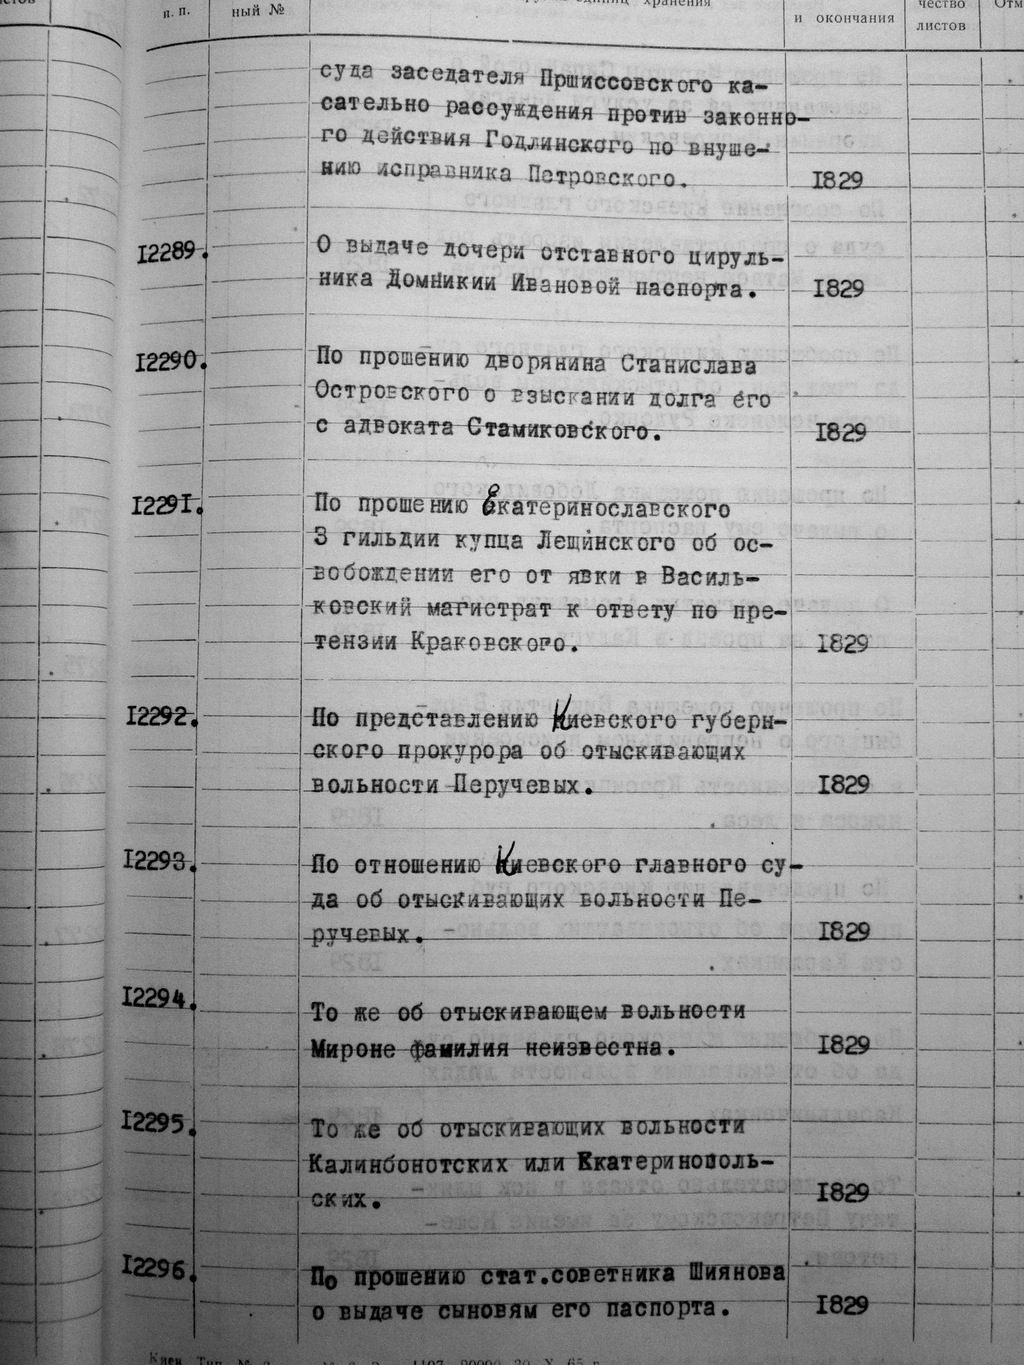 п. п.
ный №
единиц хранения
и окончания
чество
листов
суда заседателя Пршиссовского ка-
сательно рассуждения против законно-
го действия Годлинского по внуше-
нию исправника Петровского. 1829
12289. О выдаче дочери отставного цируль-
ника Домникии Ивановой паспорта. 1829
12290. По прошению дворянина Станислава
Островского о взыскании долга его
с адвоката Стамиковского. 1829
12291. По прошению Екатеринославского
3 гильдии купца Лещинского об ос-
вобождении его от явки в Василь-
ковский магистрат к ответу по пре-
тензии Краковского. 1829
12292. По представлению Киевского губерн-
ского прокурора об отыскивающих
вольности Перучевых. 1829
12293. По отношению Киевского главного су-
да об отыскивающих вольности Пе-
ручевых. 1829
12294. То же об отыскивающем вольности
Мироне фамилия неизвестна. 1829
12295. То же об отыскивающих вольности
Калинбонотских или Екатеринополь-
ских. 1829
12296. По прошению стат.советника Шиянова
о выдаче сыновям его паспорта. 1829